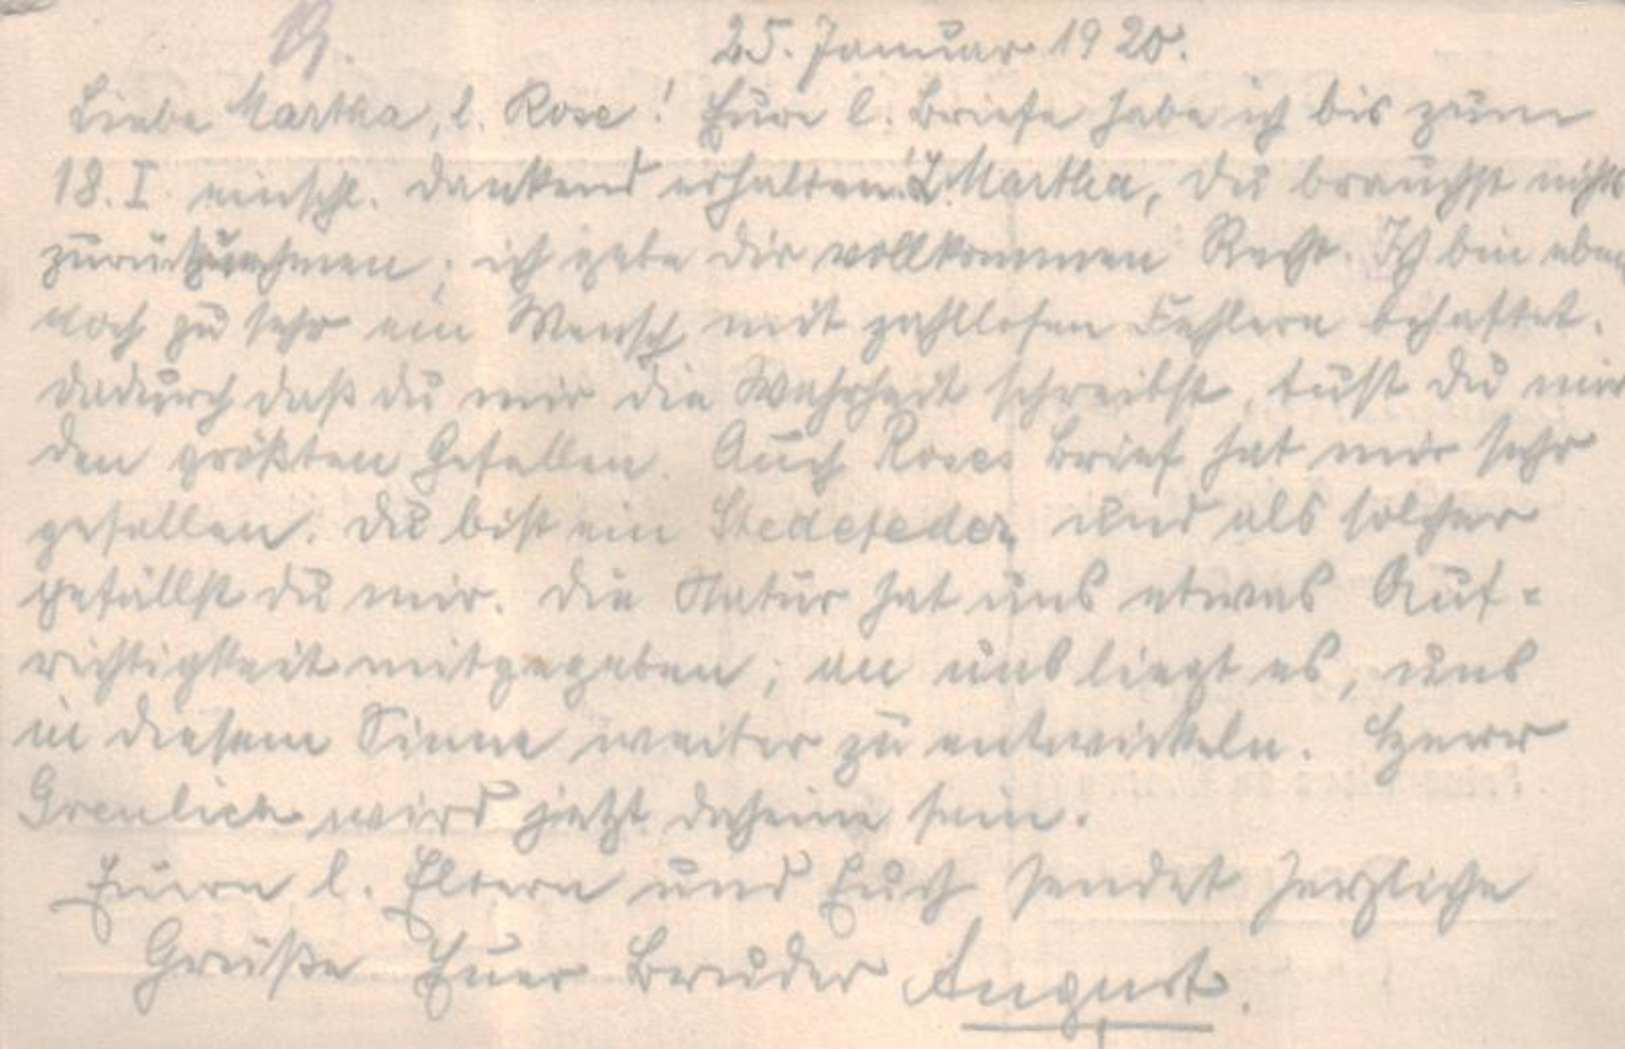 25. Januar 1920.
Liebe Martha, l. Rose! Eure l. Briefe habe ich bis zum
18. I. einschl. dankend erhalten. L. Martha, du brauchst nichts
zurückzunehmen; ich gebe dir vollkommen Recht. Ich bin eben
noch zu sehr ein Mensch mit zahllosen Fehlern behaftet.
Dadurch daß du mir die Wahrheit schreibst, tust du mir
den größten Gefallen. Auch Roses Brief hat mir sehr
gefallen. Du bist ein Stedefeder und als solcher
gefällst du mir. Die Natur hat uns etwas Auf=
richtigkeit mitgegeben; an uns liegt es, uns
in diesem Sinne weiter zu entwickeln. Herr
Greulich wird jetzt daheim sein.
Euern l. Eltern und Euch sendet herzliche
Grüße Euer Bruder August.